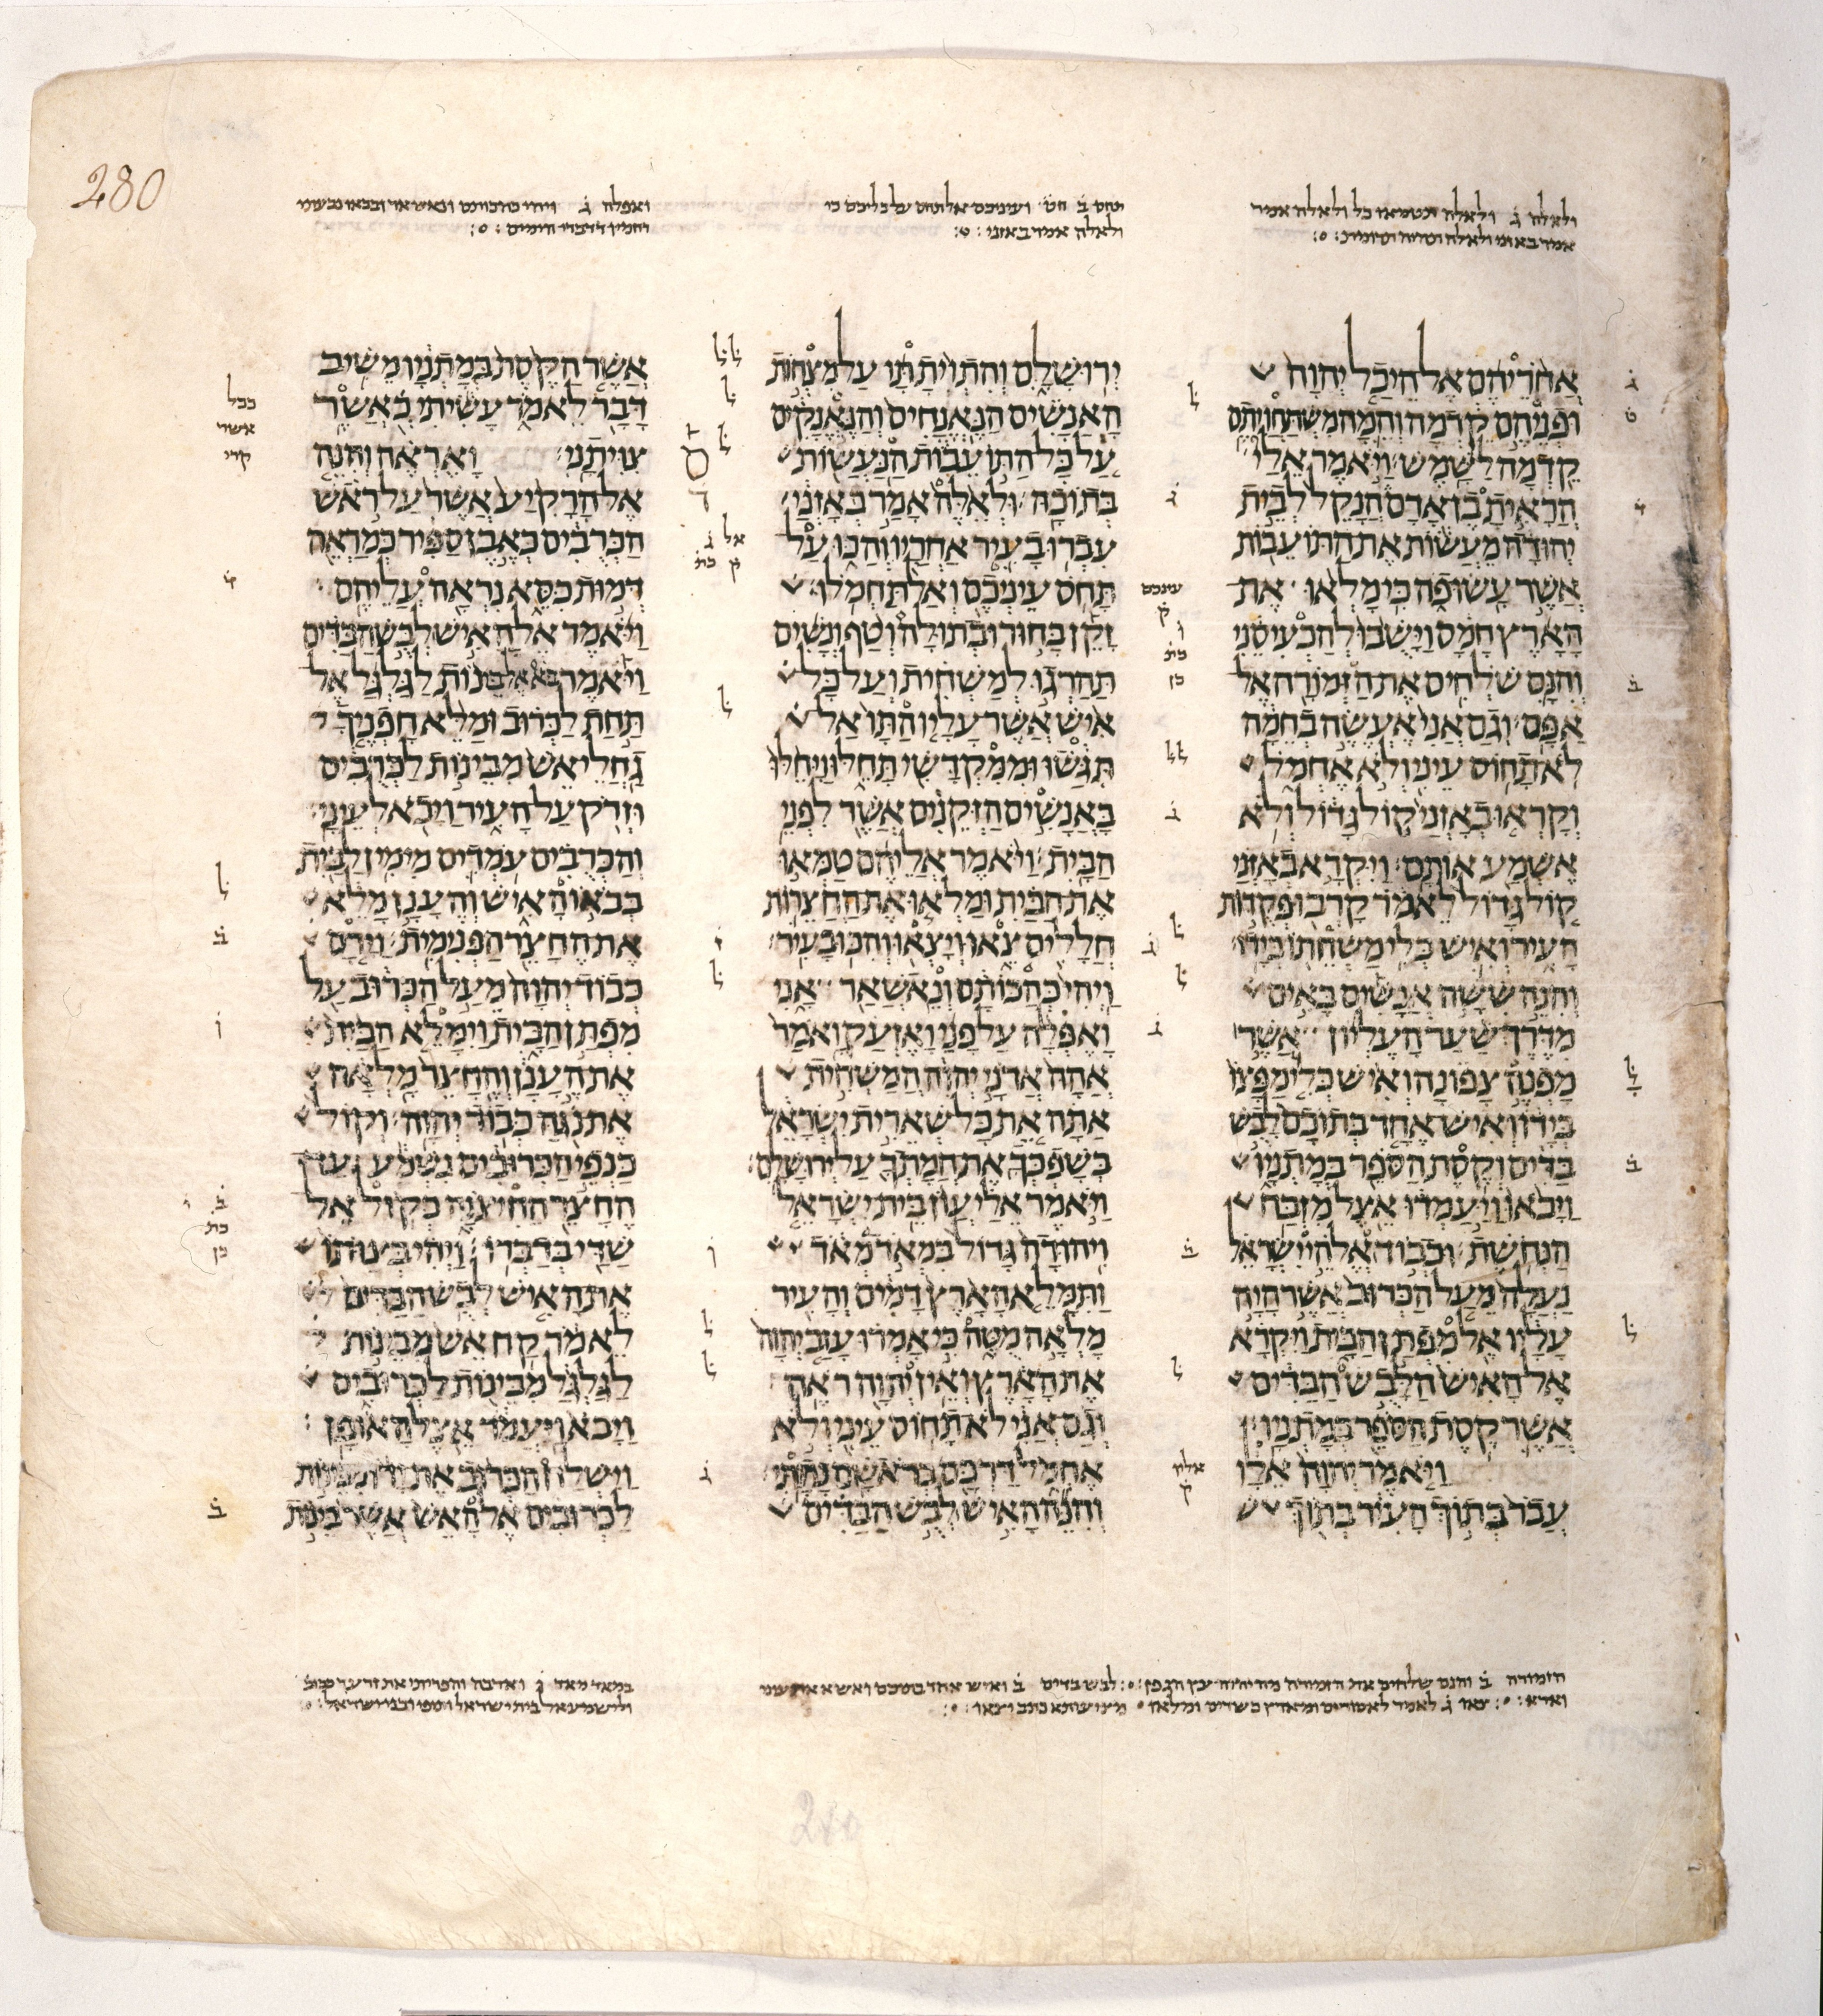 280
ולאלה ג̇ ולאלה תטמאו כל ולאלה אמר
אמר באזני ולאלה
תחס ב̇ חס̇ ועינכם אל תחס על כליכם כי
ולאלה אמר באזני
ואפלה ג̇ ויהי כהכותם ונאשאר ובבאו נבעתי
דדברי הימים
אחריהם אל היכל יהוה
ופניהם קדמה והמה משתחויתם
קדמה לשמש ויאמר אלי
הראית בן אדם הנקל לבית
יהודה מעשות את התועבות
אשר עשו פה כי מלאו את
הארץ חמס וישבו להכעיסני
והנם שלחים את הזמורה אל
אפם וגם אני אעשה בחמה
לא תחוס עיני ולא אחמל
וקראו באזני קול גדול ולא
אשמע אותם ויקרא באזני
קול גדול לאמר קרבו פקדות
העיר ואיש כלי משחתו בידו
והנה ששה אנשים באים
מדרך שער העליון אשר
מפנה צפונה ואיש כלי מפצו
בידו ואיש אחד בתוכם לבש
בדים וקסת הספר במתניו
ויבאו ויעמדו אצל מזבח
הנחשת וכבוד אלהי ישראל
נעלה מעל הכרוב אשר היה
עליו אל מפתן הבית ויקרא
אל האיש הלבש הבדים
אשר קסת הספר במתניו
ויאמר יהוה אלו
עבר בתוך העיר בתוך
ירושלם והתוית תו על מצחות
האנשים הנאנחים והנאנקים
על כל התועבות הנעשות
בתוכה ולאלה אמר באזני
עברו בעיר אחריו והכו על
תחס עיניכם ואל תחמלו
זקן בחור ובתולה וטף ונשים
תהרגו למשחית ועל כל
איש אשר עליו התו אל
תגשו וממקדשי תחלו ויחלו
באנשים הזקנים אשר לפני
הבית ויאמר אליהם טמאו
את הבית ומלאו את החצרות
חללים צאו ויצאו והכו בעיר
ויהי כהכותם ונאשאר אני
ואפלה על פני ואזעק ואמר
אהה אדני יהוה המשחית
אתה את כל שארית ישראל
בשפכך את חמתך על ירושלם
ויאמר אלי עון בית ישראל
ויהודה גדול במאד מאד
ותמלא הארץ דמים והעיר
מלאה מטה כי אמרו עזב יהוה
את הארץ ואין יהוה ראה
וגם אני לא תחוס עיני ולא
אחמל דרכם בראשם נתתי
והנה האיש לבש הבדים
אשר הקסת במתניו משיב
דבר לאמר עשיתי כאשר
צויתני ואראה והנה
אל הרקיע אשר על ראש
הכרבים כאבן ספיר כמראה
דמות כסא נראה עליהם
ויאמר אל האיש לבש הבדים
ויאמר בא אל בינות לגלגל אל
תחת לכרוב ומלא חפניך
גחלי אש מבינות לכרבים
וזרק על העיר ויבא לעיני
והכרבים עמדים מימין לבית
בבאו האיש והענן מלא
את החצר הפנימית וירם
כבוד יהוה מעל הכרוב על
מפתן הבית וימלא הבית
את הענן והחצר מלאה
את נגה כבוד יהוה וקול
כנפי הכרובים נשמע עד
החצר החיצנה כקול אל
שדי בדברו ויהי בצותו
את האיש לבש הבדים
לאמר קח אש מבינות
לגלגל מבינות לכרובים
ויבא ויעמד אצל האופן
וישלח הכרוב את ידו מבינות
לכרובים אל האש אשר בינות
הזמורה ב̇ והנם שלחים את הזמורה מה יהיה עץ הגפן לבש בדים ב̇ ואיש אחד בתוכם ואשא את עיני
וארא צאו ג̇ לאמר לאסורים ומארץ כשדים ומלאו
במאד מאד ג̇ וארבה והפריתי את זרעך
ולישמעאל בית ישראל